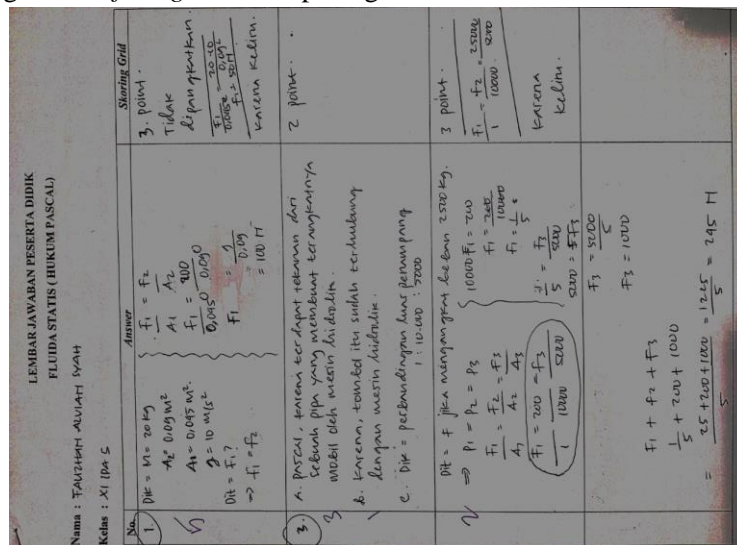 LEMBAR JAWABAN PESERTA DIDIK
FLUIDA STATIS ( HUKUM PASCAL)
Nama : FAUZHAH ALVIAH SYAH
Kelas : XI IPA 5
No. Answer Skoring Grid
1.
5
Dik = M = 20 kg
A2 = 0,09 m²
A1 = 0,045 m².
g = 10 m/s²
Dit = F1?
=> F1 = F2
F1 = F2
A1 A2
F1 = 200
0,045 0,09
F1 = 9
0,09
= 100 N
3. point.
Tidak
dipangkatkan.
F1 = 20.10
0,045² 0,09²
F1 = 50N
karena keliru.
3.
3
a. Pascal, karena terdapat tekanan dari
sebuah pipa yang membuat terangkatnya
mobil oleh mesin hidrolik.
b. Karena, tombol itu sudah terhubung
dengan mesin hidrolik.
c. Dik = perbandingan luas penampang
1 : 10.000 : 5000
2 point.
2
Dit = F jika mengangkat beban 2500 kg.
=> P1 = P2 = P3
F1 = F2 = F3
A1 A2 A3
F1 = 200 = F3
1 10000 5000
10000 F1 = 200
F1 = 200
10000
F1 = 1
5
1 = F3
5 5000
5000 = 5F3
F3 = 5000
5
F3 = 1000
3 point.
F1 = F2 = 25000
1 10000 5000
karena
keliru.
F1 + F2 + F3
1 + 200 + 1000
5
= 25 + 200 + 1000 = 1225 = 245 N
5 5